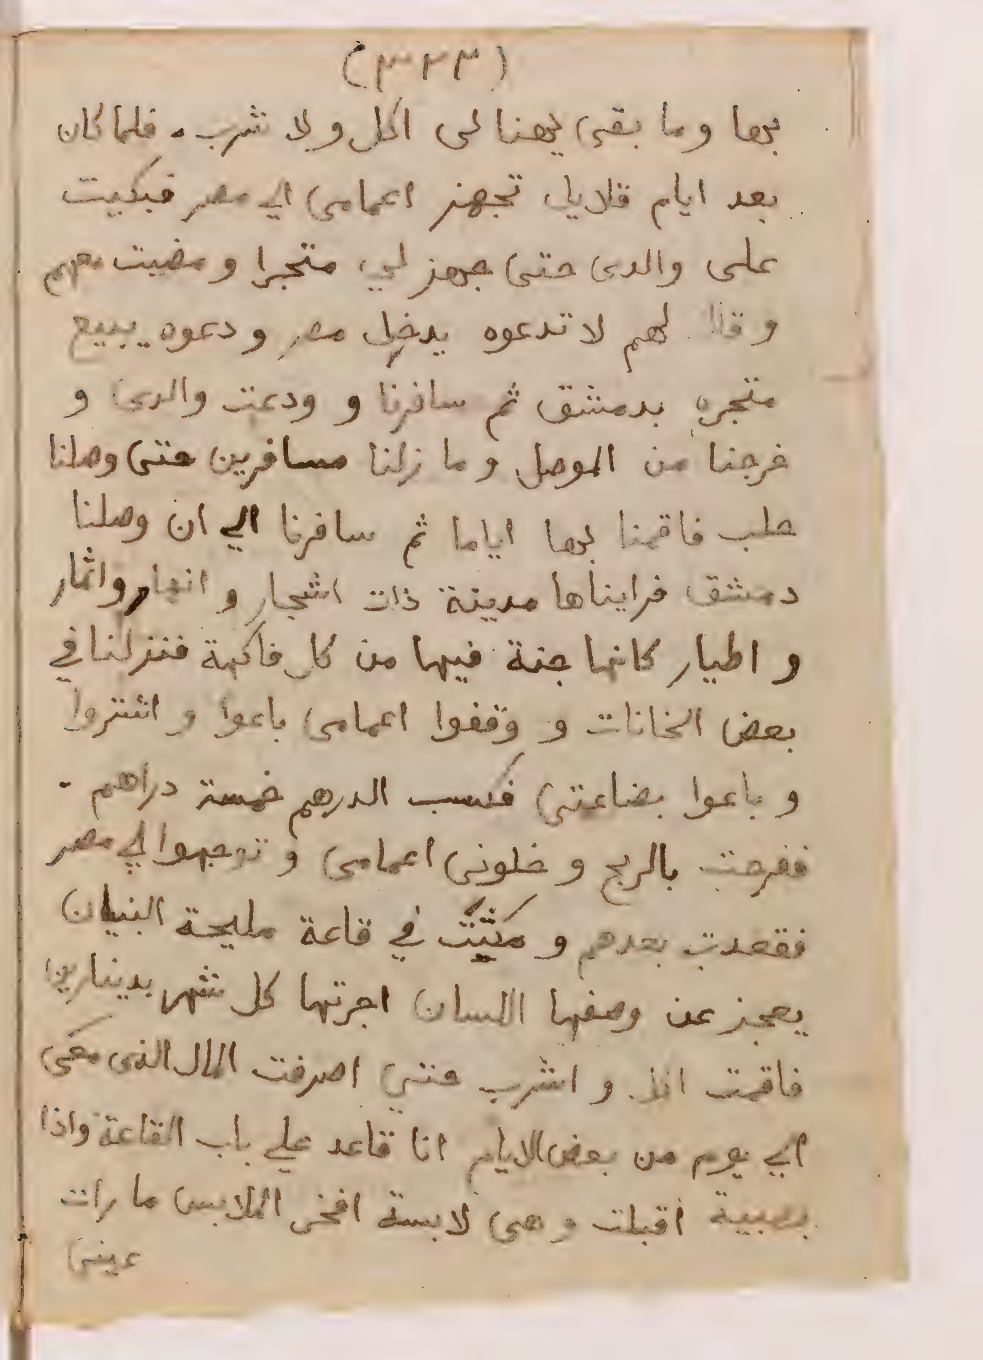 (٣٢٣)
بها وما بقى يهنا لى اكل ولا شرب. فلما كان
بعد ايام قلايل تجهز اعمامى الي مصر فبكيت
على والدى حتى جهز لي متجرا ومضيت معهم
وقال لهم لا تدعوه يدخل مصر ودعوه يبيع
متجره بدمشق ثم سافرنا و ودعت والدى و
خرجنا من الموصل وما زلنا مسافرين حتى وصلنا
حلب فاقمنا بها اياما ثم سافرنا الي ان وصلنا
دمشق فرايناها مدينة ذات اشجار و انهار واثمار
و اطيار كانها جنة فيها من كل فاكهة فنزلنا في
بعض الخانات و وقفوا اعمامى باعوا و اشتروا
و باعوا بضاعتى فكسب الدرهم خمسة دراهم .
ففرحت بالربح و خلونى اعمامى و توجهوا الي مصر
فقعدت بعدهم و مكثت في قاعة مليحة البنيان
يعجز عن وصفها اللسان اجرتها كل شهر بدينارين
فاقمت و اشرب حتى اصرفت المال الذى معى
الي يوم من بعض الايام انا قاعد علي باب القاعة واذا
بصبية اقبلت و هى لابسة افخر الملابس ما رات
عينى